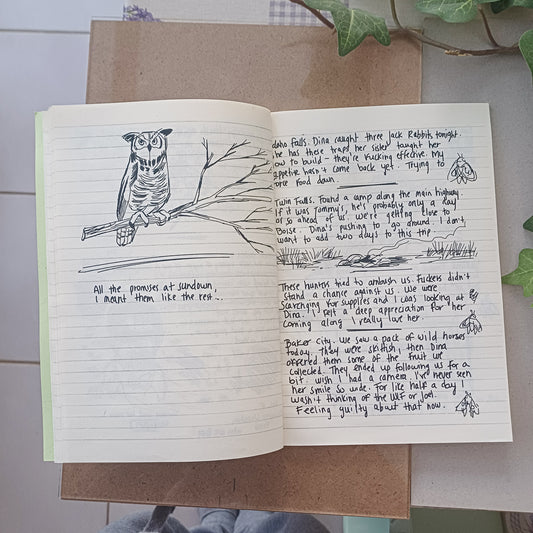 All the promises at sundown,
I meant them like the rest...
Idaho Falls. Dina caught three Jack Rabbits tonight.
She has these traps her sister taught her
how to build – they're fucking effective. My
appetite hasn't come back yet. Trying to
force food down.
Twin Falls. Found a camp along the main highway.
If it was Tommy's, he's probably only a day
or so ahead of us. We're getting close to
Boise. Dina's pushing to go around. I don't
want to add two days to this trip.
These hunters tried to ambush us. Fuckers didn't
stand a chance against us. We were
scavenging for supplies and I was looking at
Dina. I felt a deep appreciation for her
coming along. I really love her.
Baker City. We saw a pack of wild horses
today. They were skittish, then Dina
offered them some of the fruit we
collected. They ended up following us for a
bit. Wish I had a camera. I've never seen
her smile so wide. For like half a day I
wasn't thinking of the WLF or Joel.
Feeling guilty about that now.